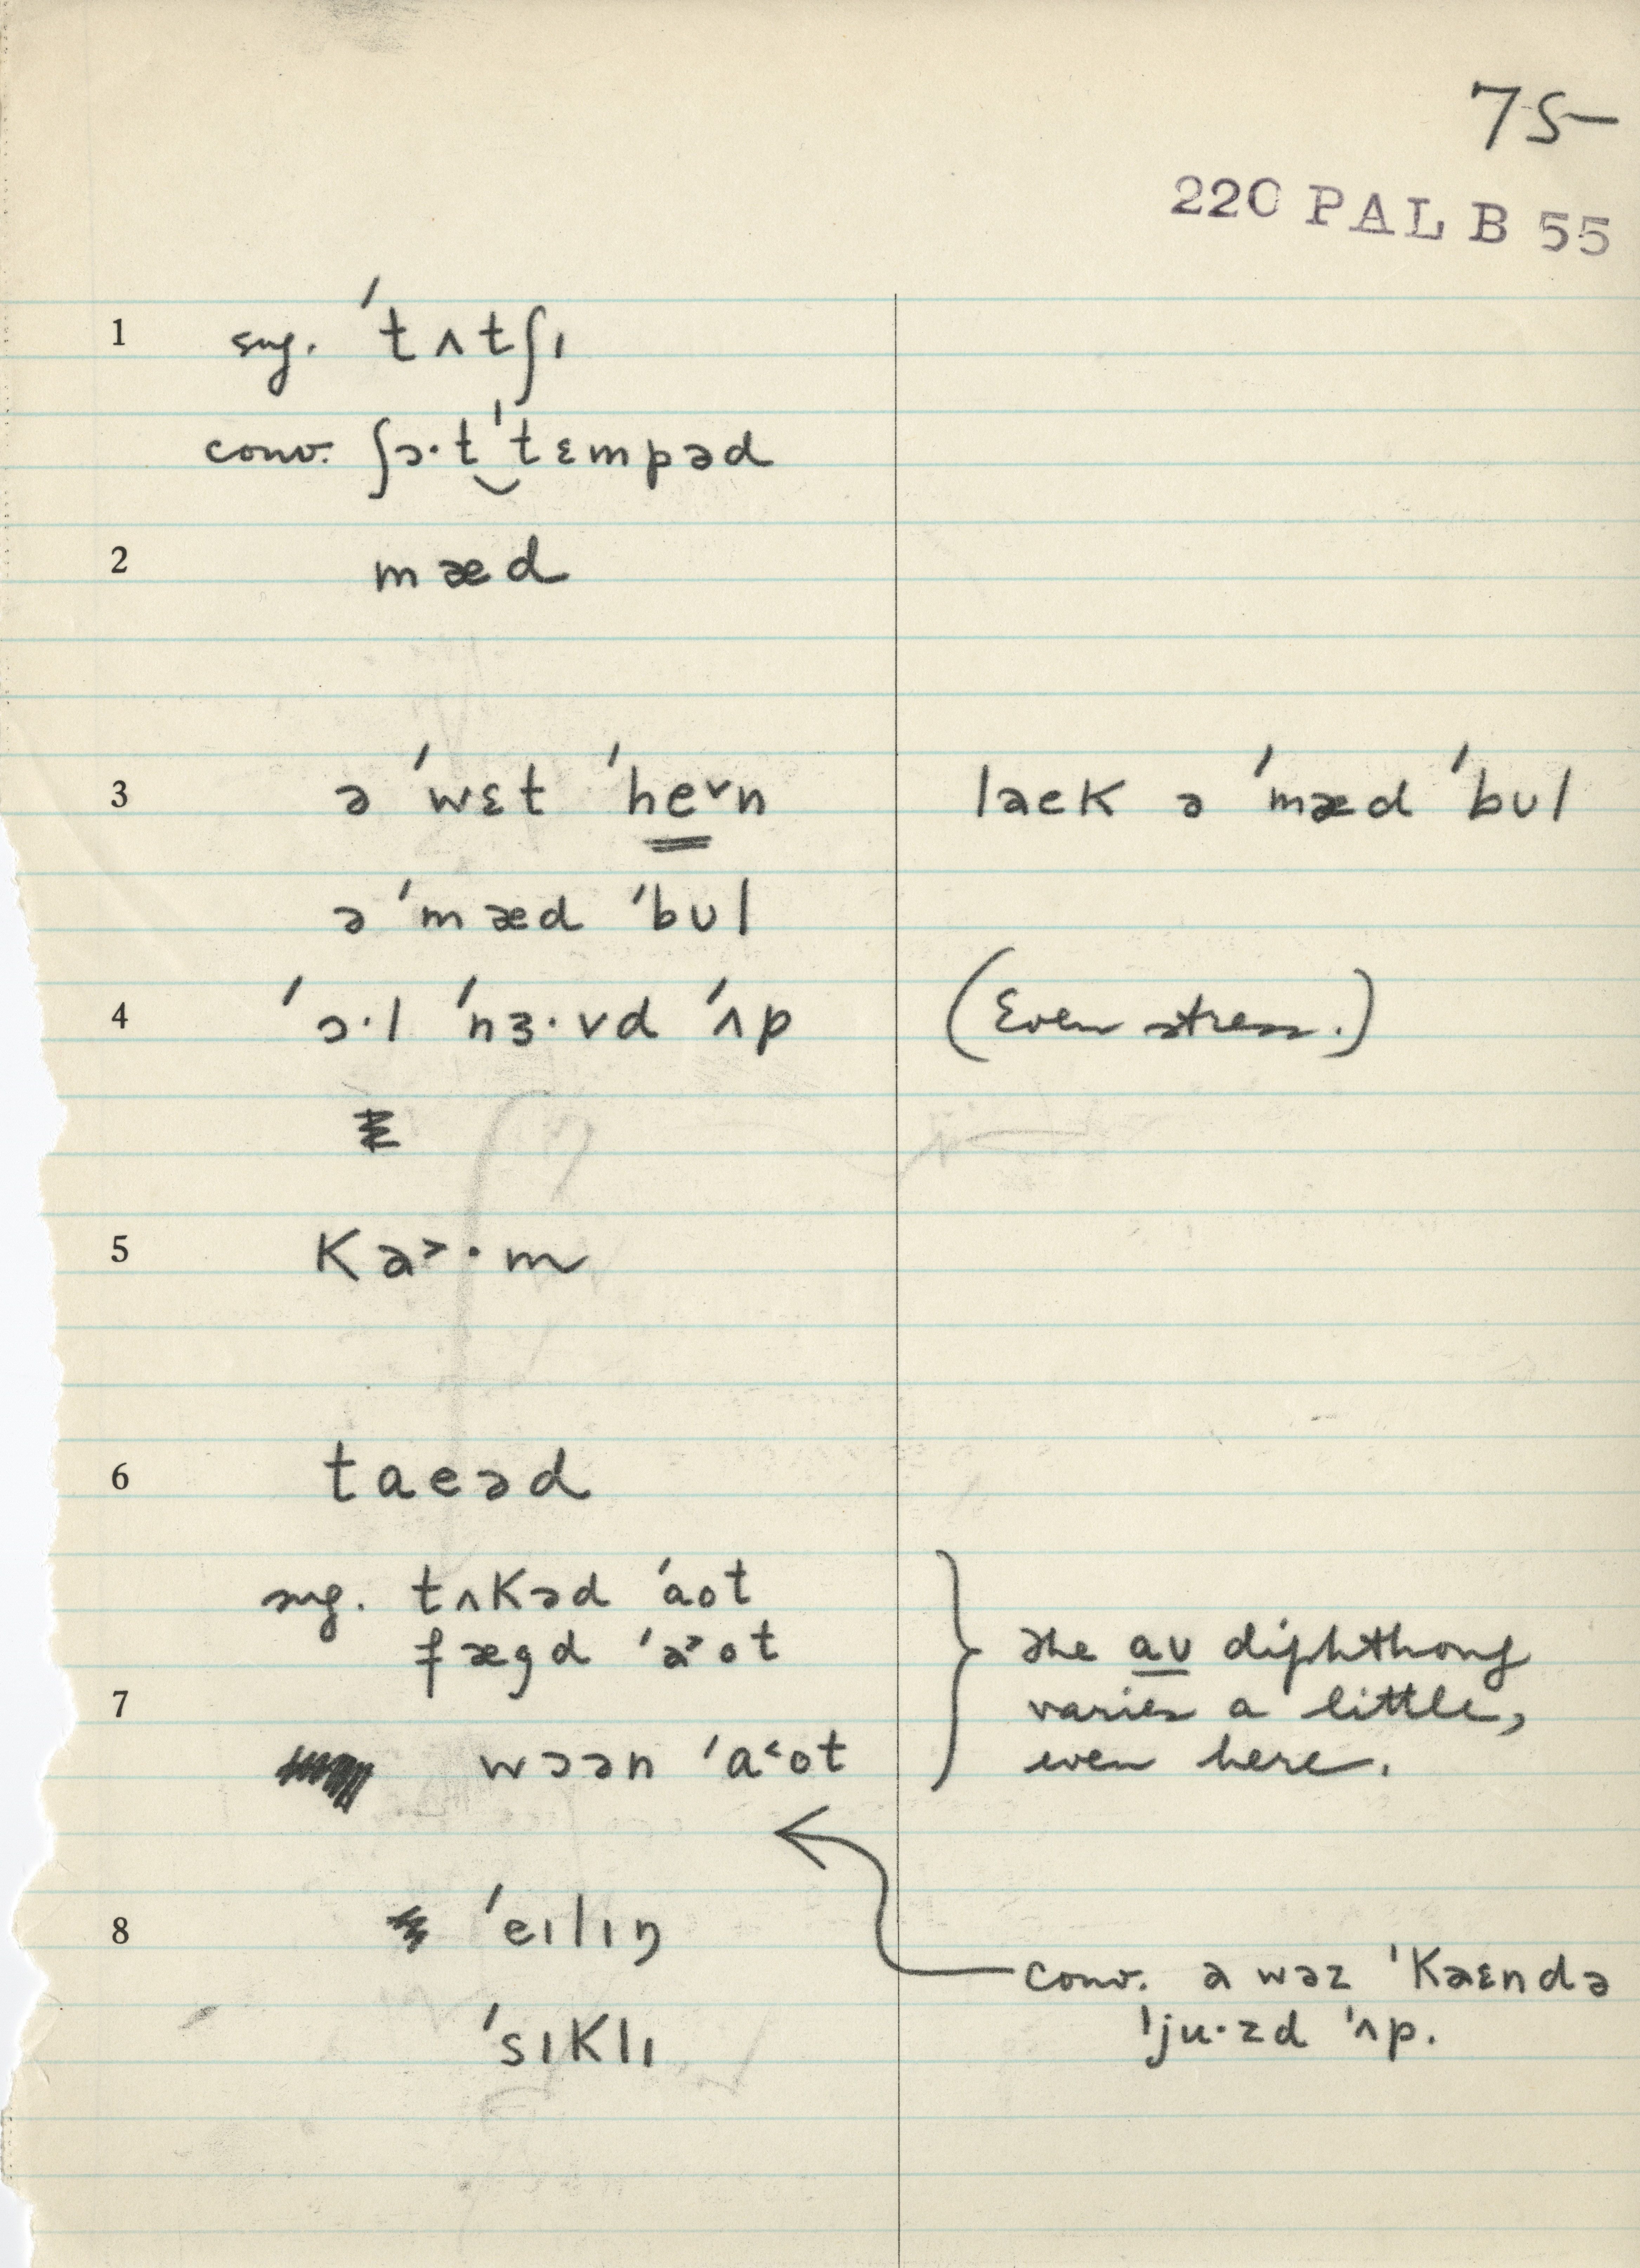 75–
220 PAL B 55
1 sug. ˈtʌtʃɪ
conv. ʃɔ·t‿ˈtɛmpəd
2 mæd
3 ə ˈwɛt ˈhe˅n laek ə ˈmæd ˈbʊl
ə ˈmæd ˈbʊl
4 ˈɔ·l ˈnɜ·vd ˈʌp (Even stress.)
5 ka˃·m
6 taeəd
sug. tʌkəd ˈaot
fægd ˈa˃ot the aʊ diphthong
7 varies a little,
wɔən ˈa˂ot even here.
8 ˈeɪlɪŋ
conv. a wəz ˈkaɛndə
ˈsɪklɪ ˈju·zd ˈʌp.